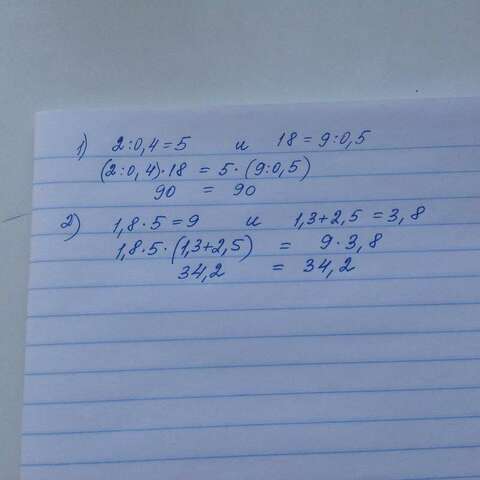 1) 2:0,4=5 и 18=9:0,5
(2:0,4)·18 = 5·(9:0,5)
90 = 90
2) 1,8·5=9 и 1,3+2,5=3,8
1,8·5·(1,3+2,5) = 9·3,8
34,2 = 34,2